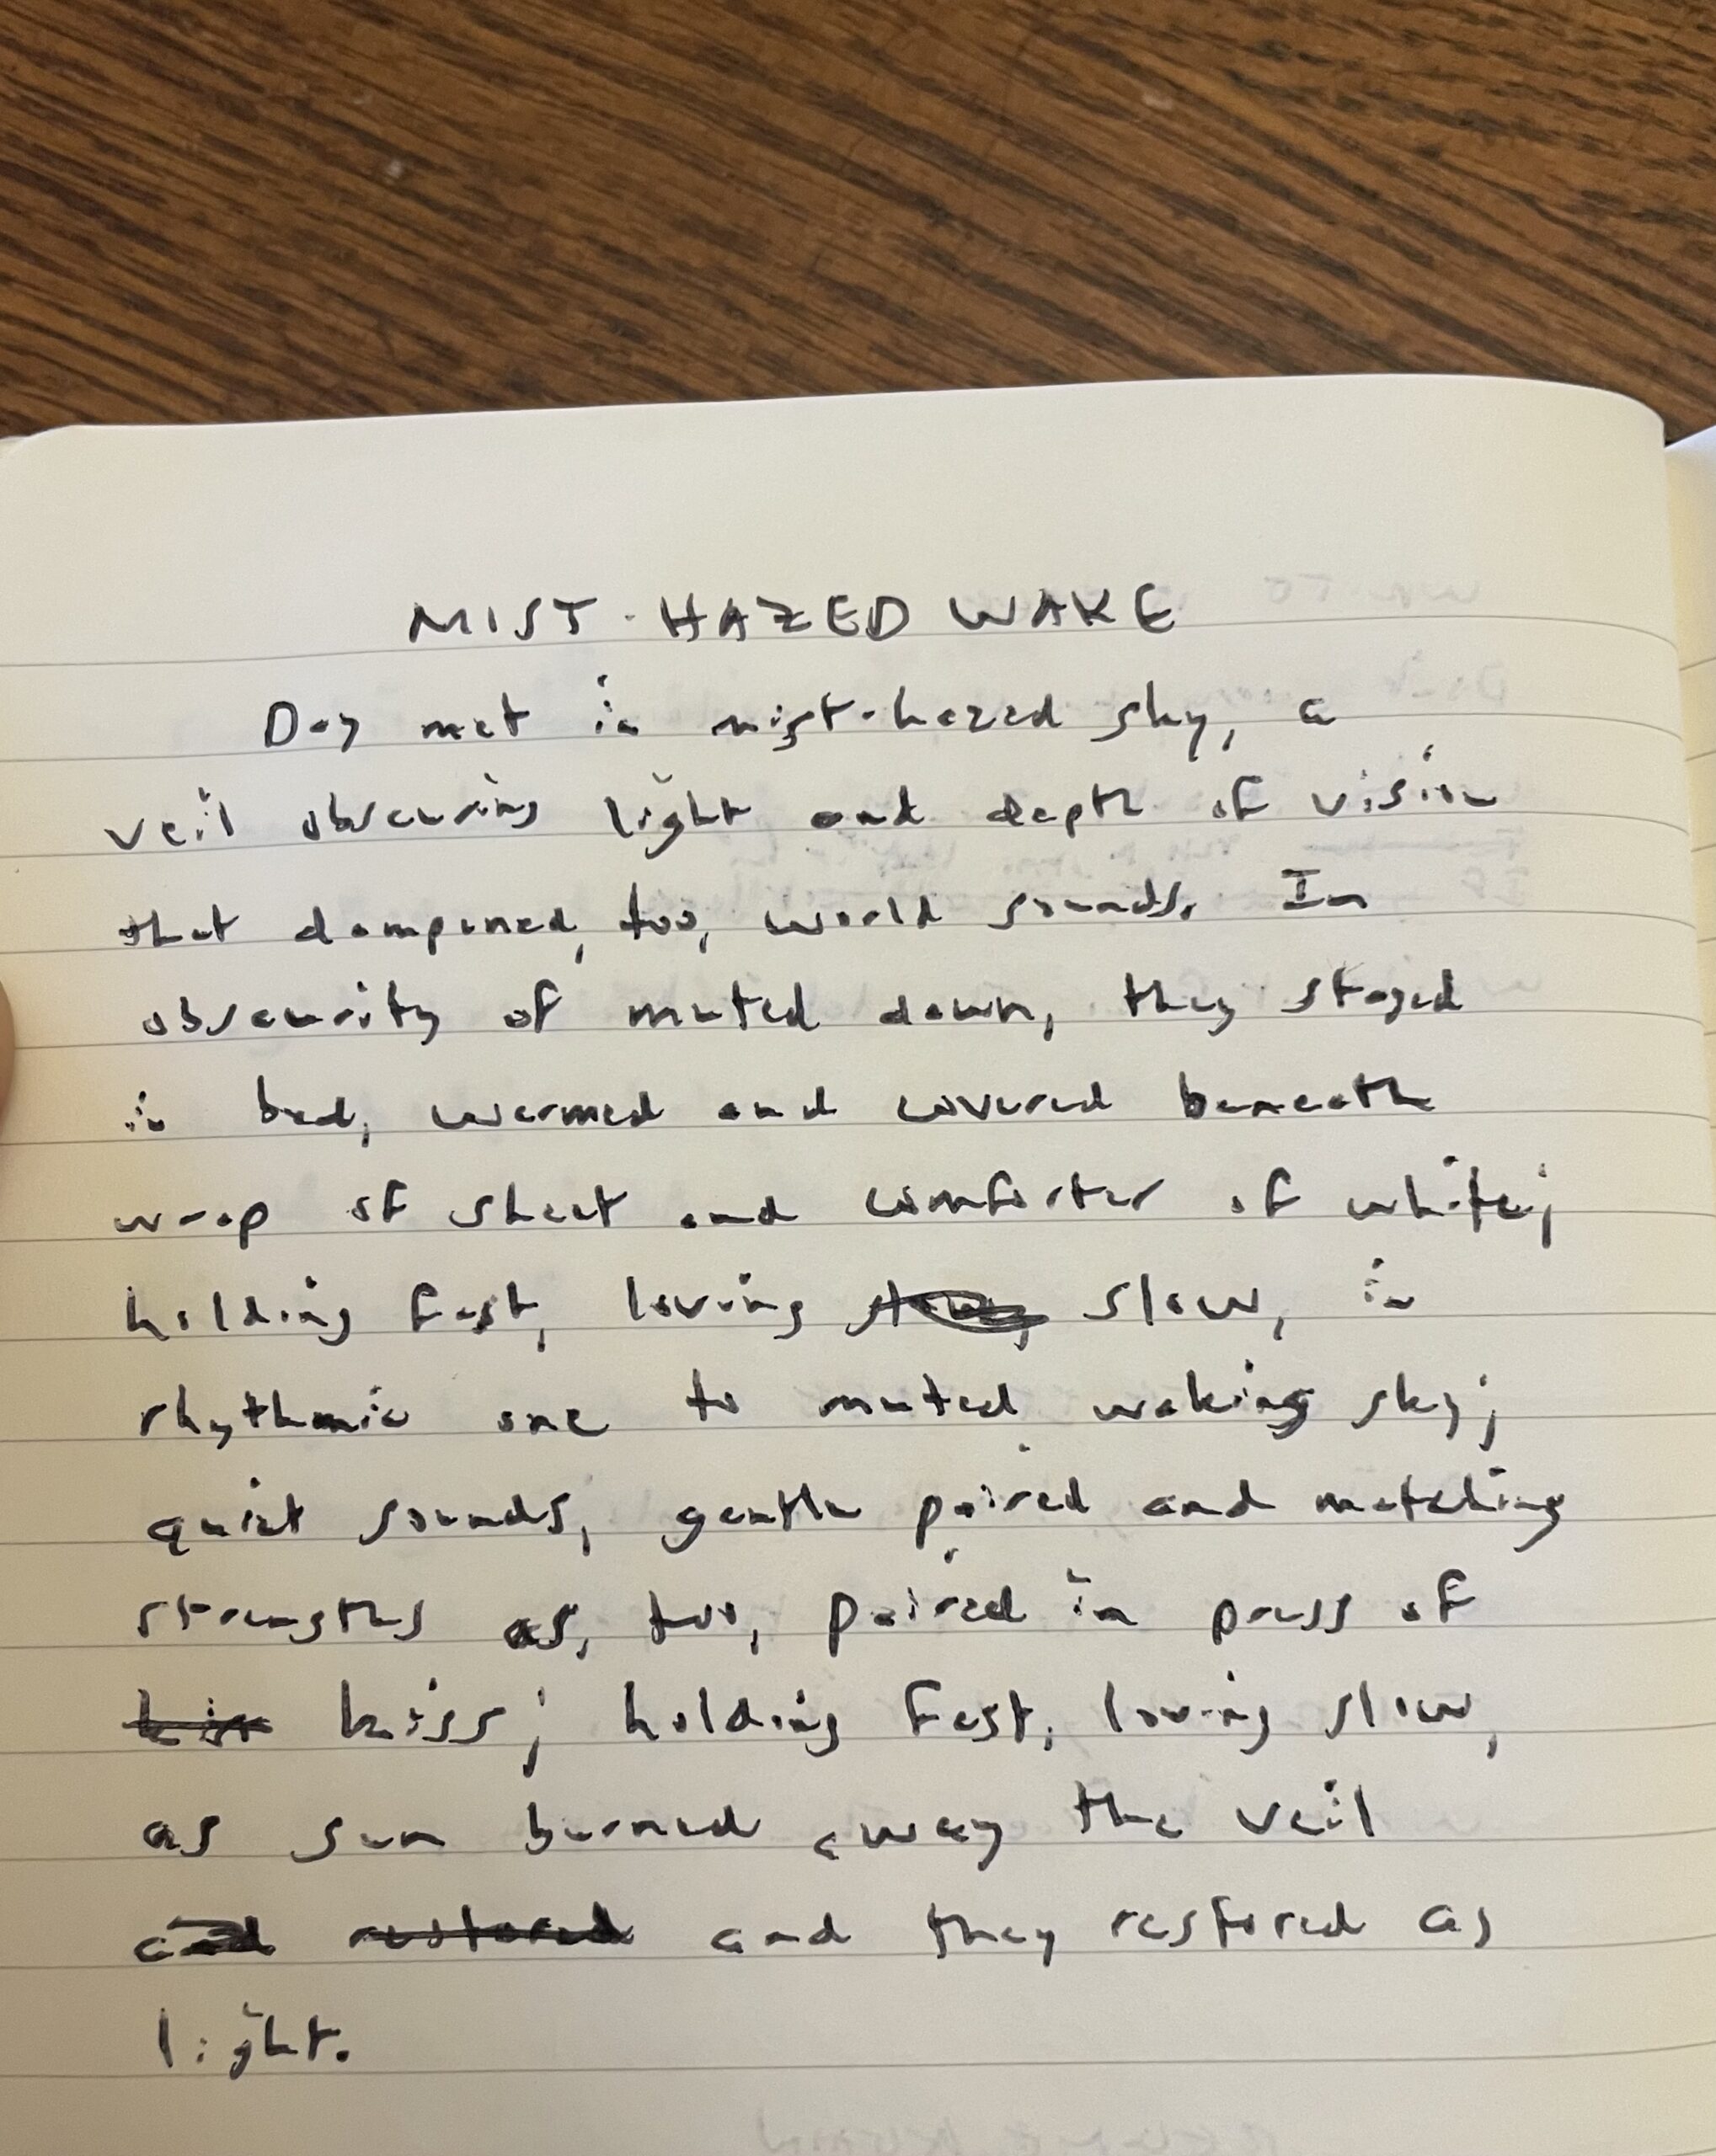 MIST-HAZED WAKE
Day met in mist-hazed sky, a
veil obscuring light and depth of vision
that dampened, too, world sounds. In
obscurity of muted dawn, they stayed
in bed, warmed and covered beneath
wrap of sheet and comforter of white;
holding fast, loving slow, in
rhythmic one to muted waking sky;
quiet sounds, gentle paired and matching
strengths as, too, paired in press of
kiss; holding fast, loving slow,
as sun burned away the veil
and restored and they restored as
light.